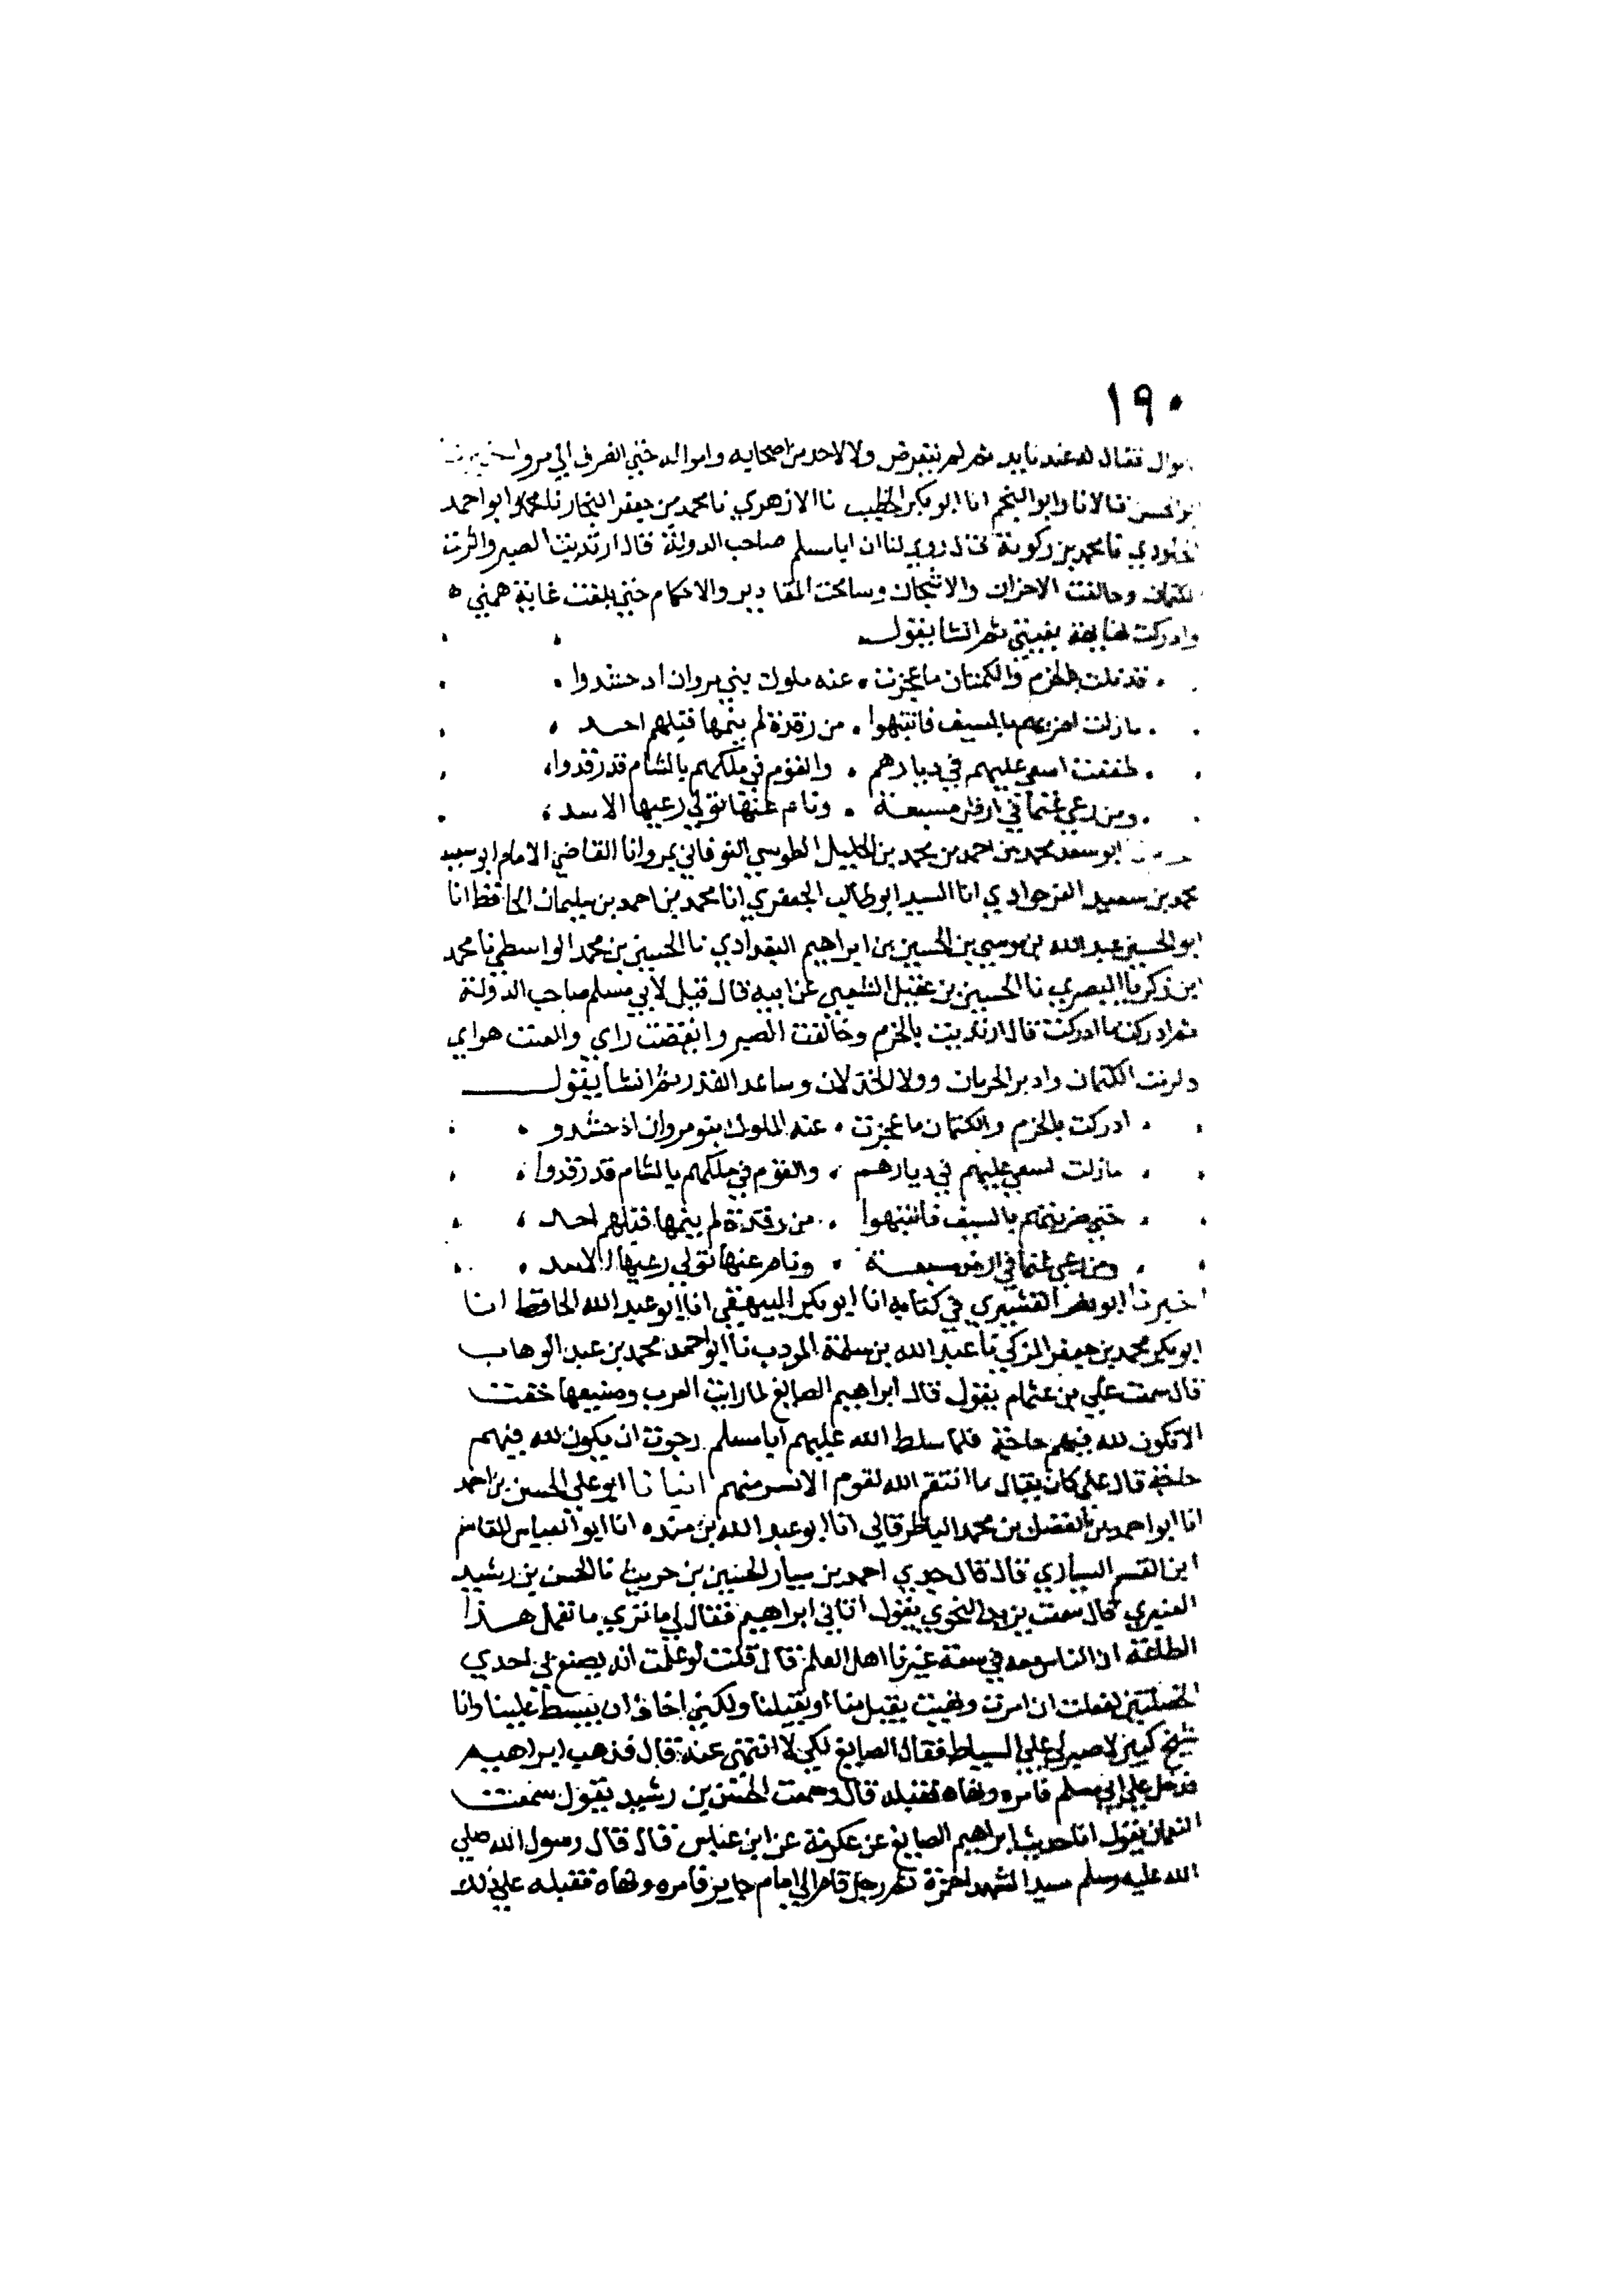 ١٩٠
فقال له عند نابي ثم لم يتعرض له ولا لاحد من اصحابه وامواله حتي انصرف الي مرو
بن الحسن قالا نا وابو النجم انا ابو بكر الخطيب نا الازهري نا محمد بن جعفر النجار نا محمد ابو احمد
الجلودي نا محمد بن زكويه قال روي لنا ان ابا مسلم صاحب الدولة قال ارتديت الصبر واثرت
الكتمان وحالفت الاحزان والاشجان وسامحت المقادير والاحكام حتي بلغت غاية همتي ه
وادركت نهاية بغيتي ثم انشا يقول
. قد نلت بالحزم والكتمان ما عجزت . عنه ملوك بني مروان اذ حشدوا .
. ما زلت اضربهم بالسيف فانتبهوا . من رقدة لم ينمها قبلهم احد .
. طفقت اسعي عليهم في ديارهم . والقوم في ملكهم بالشام قد رقدوا .
. ومن رعي غنما في ارض مسبعة . ونام عنها تولي رعيها الاسد .
ابو سعد محمد بن احمد بن محمد بن الخليل الطوسي النوقاني بمرو انا القاضي الامام ابو سعيد
محمد بن سعيد الفرخزادي انا السيد ابو طالب الجعفري انا محمد بن احمد بن سليمان الحافظ انا
ابو الحسين عبد الله بن موسي بن الحسين بن ابراهيم البغدادي نا الحسين بن محمد الواسطي نا محمد
ابن زكريا البصري نا الحسين بن عقيل الشعبي عن ابيه قال قيل لابي مسلم صاحب الدولة
ثم ادركت ما ادركت قال ارتديت بالحزم وحالفت الصبر وانتهضت راي والعنت هواي
ولزمت الكتمان وادبر الحرمان وولا الخذلان وساعد القدر ثم انشا يقول
. ادركت بالحزم والكتمان ما عجزت . عنه الملوك بنو مروان اذ حشدو .
. ما زلت اسعي عليهم في ديارهم . والقوم في ملكهم بالشام قد رقدوا .
. حتي ضربتهم بالسيف فانتبهوا . من رقدة لم ينمها قبلهم احد .
. ومن رعي غنما في ارض مسبعة . ونام عنها تولي رعيها الاسد .
اخبرنا ابو نصر القشيري في كتابه انا ابو بكر البيهقي انا ابو عبد الله الحافظ انا
ابو بكر محمد بن جعفر المزكي نا عبد الله بن سلمة المودب نا ابو احمد محمد بن عبد الوهاب
قال سمعت علي بن عثام يقول قال ابراهيم الصايغ لما رايت العرب وصنيعها خفت
الا تكون لله فيهم حاجة فلما سلط الله عليهم ابا مسلم رجوت ان يكون لله فيهم
حاجة قال علي كان يقال ما انتقم الله لقوم الا بشر منهم انبانا ابو علي الحسن بن احمد
انا ابو احمد بن الفضل بن محمد الباطرقاني انا ابو عبد الله بن منده انا ابو العباس القاسم
ابن القسم السياري قال قال جدي احمد بن سيار الحسين بن حريث نا الحسن بن رشيد
العنبري قال سمعت يزيد النحوي يقول اتاني ابراهيم فقال لي ما تري ما تعمل هذا
الطاغية ان الناس معه في سعة غيرنا اهل العلم قال قلت لو علمت انه يصنع لي احدي
الخصلتين لفعلت ان امرت ونهيت يقبل منا او يقتلنا ولكني اخاف ان يبسط علينا وانا
شيخ كبير لا صبر لي علي السياط فقال الصايغ لكي لا انتهي عنه قال فذهب ابراهيم
فدخل علي ابي مسلم فامره ونهاه فقتله قال وسمعت الحسن بن رشيد يقول سمعت
النعمان يقول انا حديث ابراهيم الصايغ عن عكرمة عن ابن عباس قال قال رسول الله صلي
الله عليه وسلم سيد الشهدا حمزة ثم رجل قام الي امام جاير فامره ونهاه فقتله علي ذلك